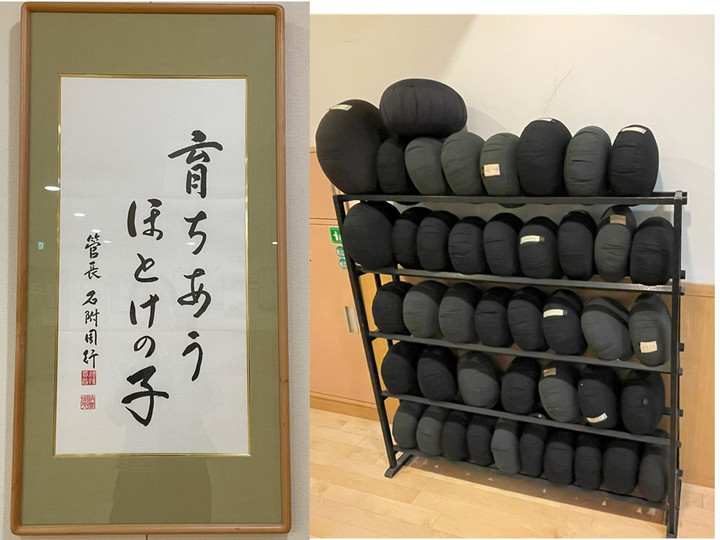 育ちあう
ほとけの子
管長 石附周行